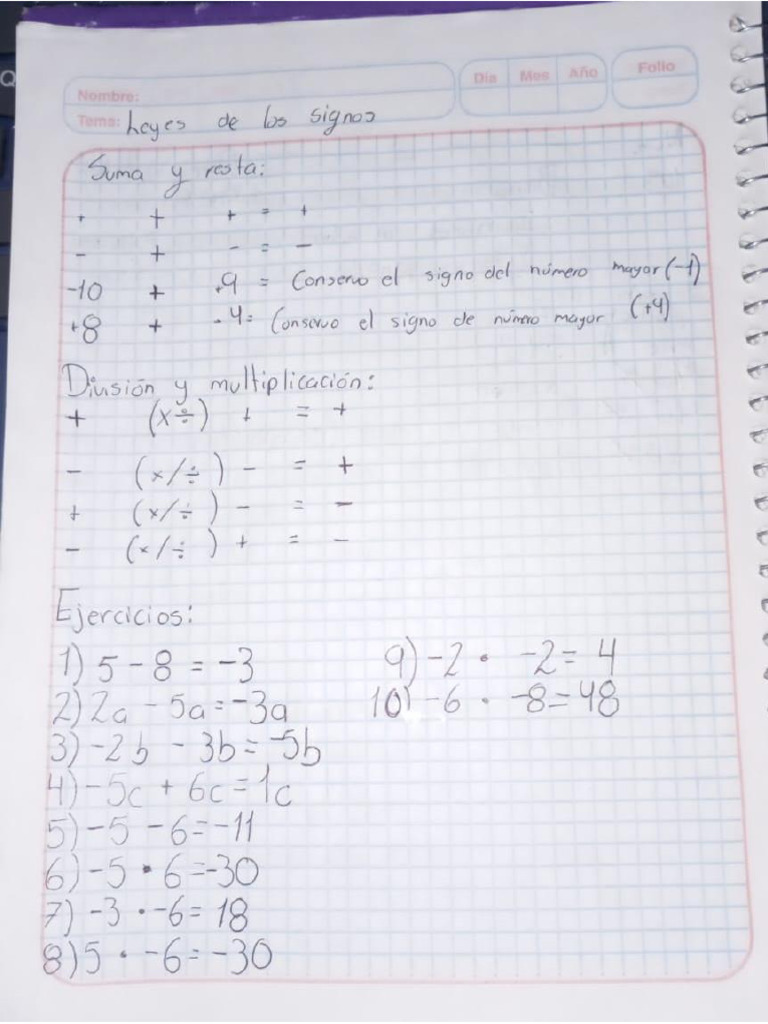 Q
Día Mes Año Folio
Nombre:
Tema: Leyes de los signos
Suma y resta:
+ + + = +
- + - = -
-10 + +9 = Conservo el signo del número mayor (-1)
+8 + -4 = Conservo el signo de número mayor (+4)
División y multiplicación:
+ (x÷) + = +
- (x/÷) - = +
+ (x/÷) - = -
- (x/÷) + = -
Ejercicios:
1) 5 - 8 = -3
2) 2a - 5a = -3a
3) -2b - 3b = -5b
4) -5c + 6c = 1c
5) -5 - 6 = -11
6) -5 • 6 = -30
7) -3 • -6 = 18
8) 5 • -6 = -30
9) -2 • -2 = 4
10) -6 • -8 = 48